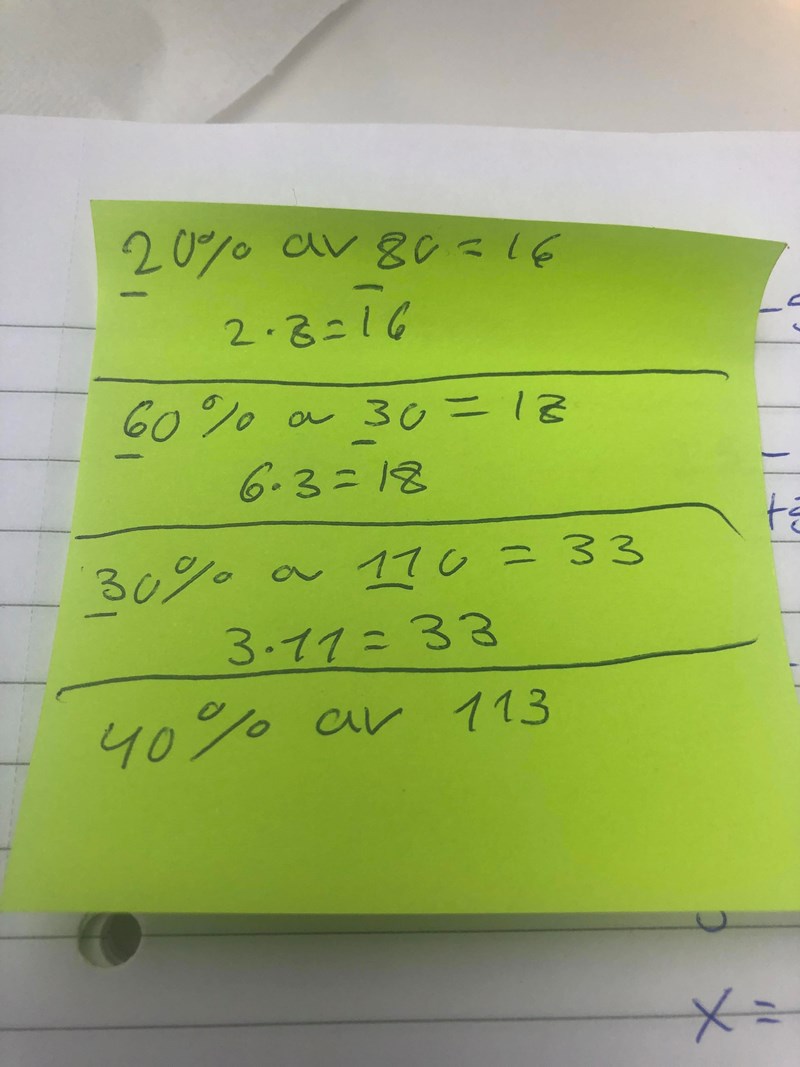 20% av 80 = 16
2·8=16
60% a 30 = 18
6·3=18
30% a 110 = 33
3·11=33
40% av 113
x =